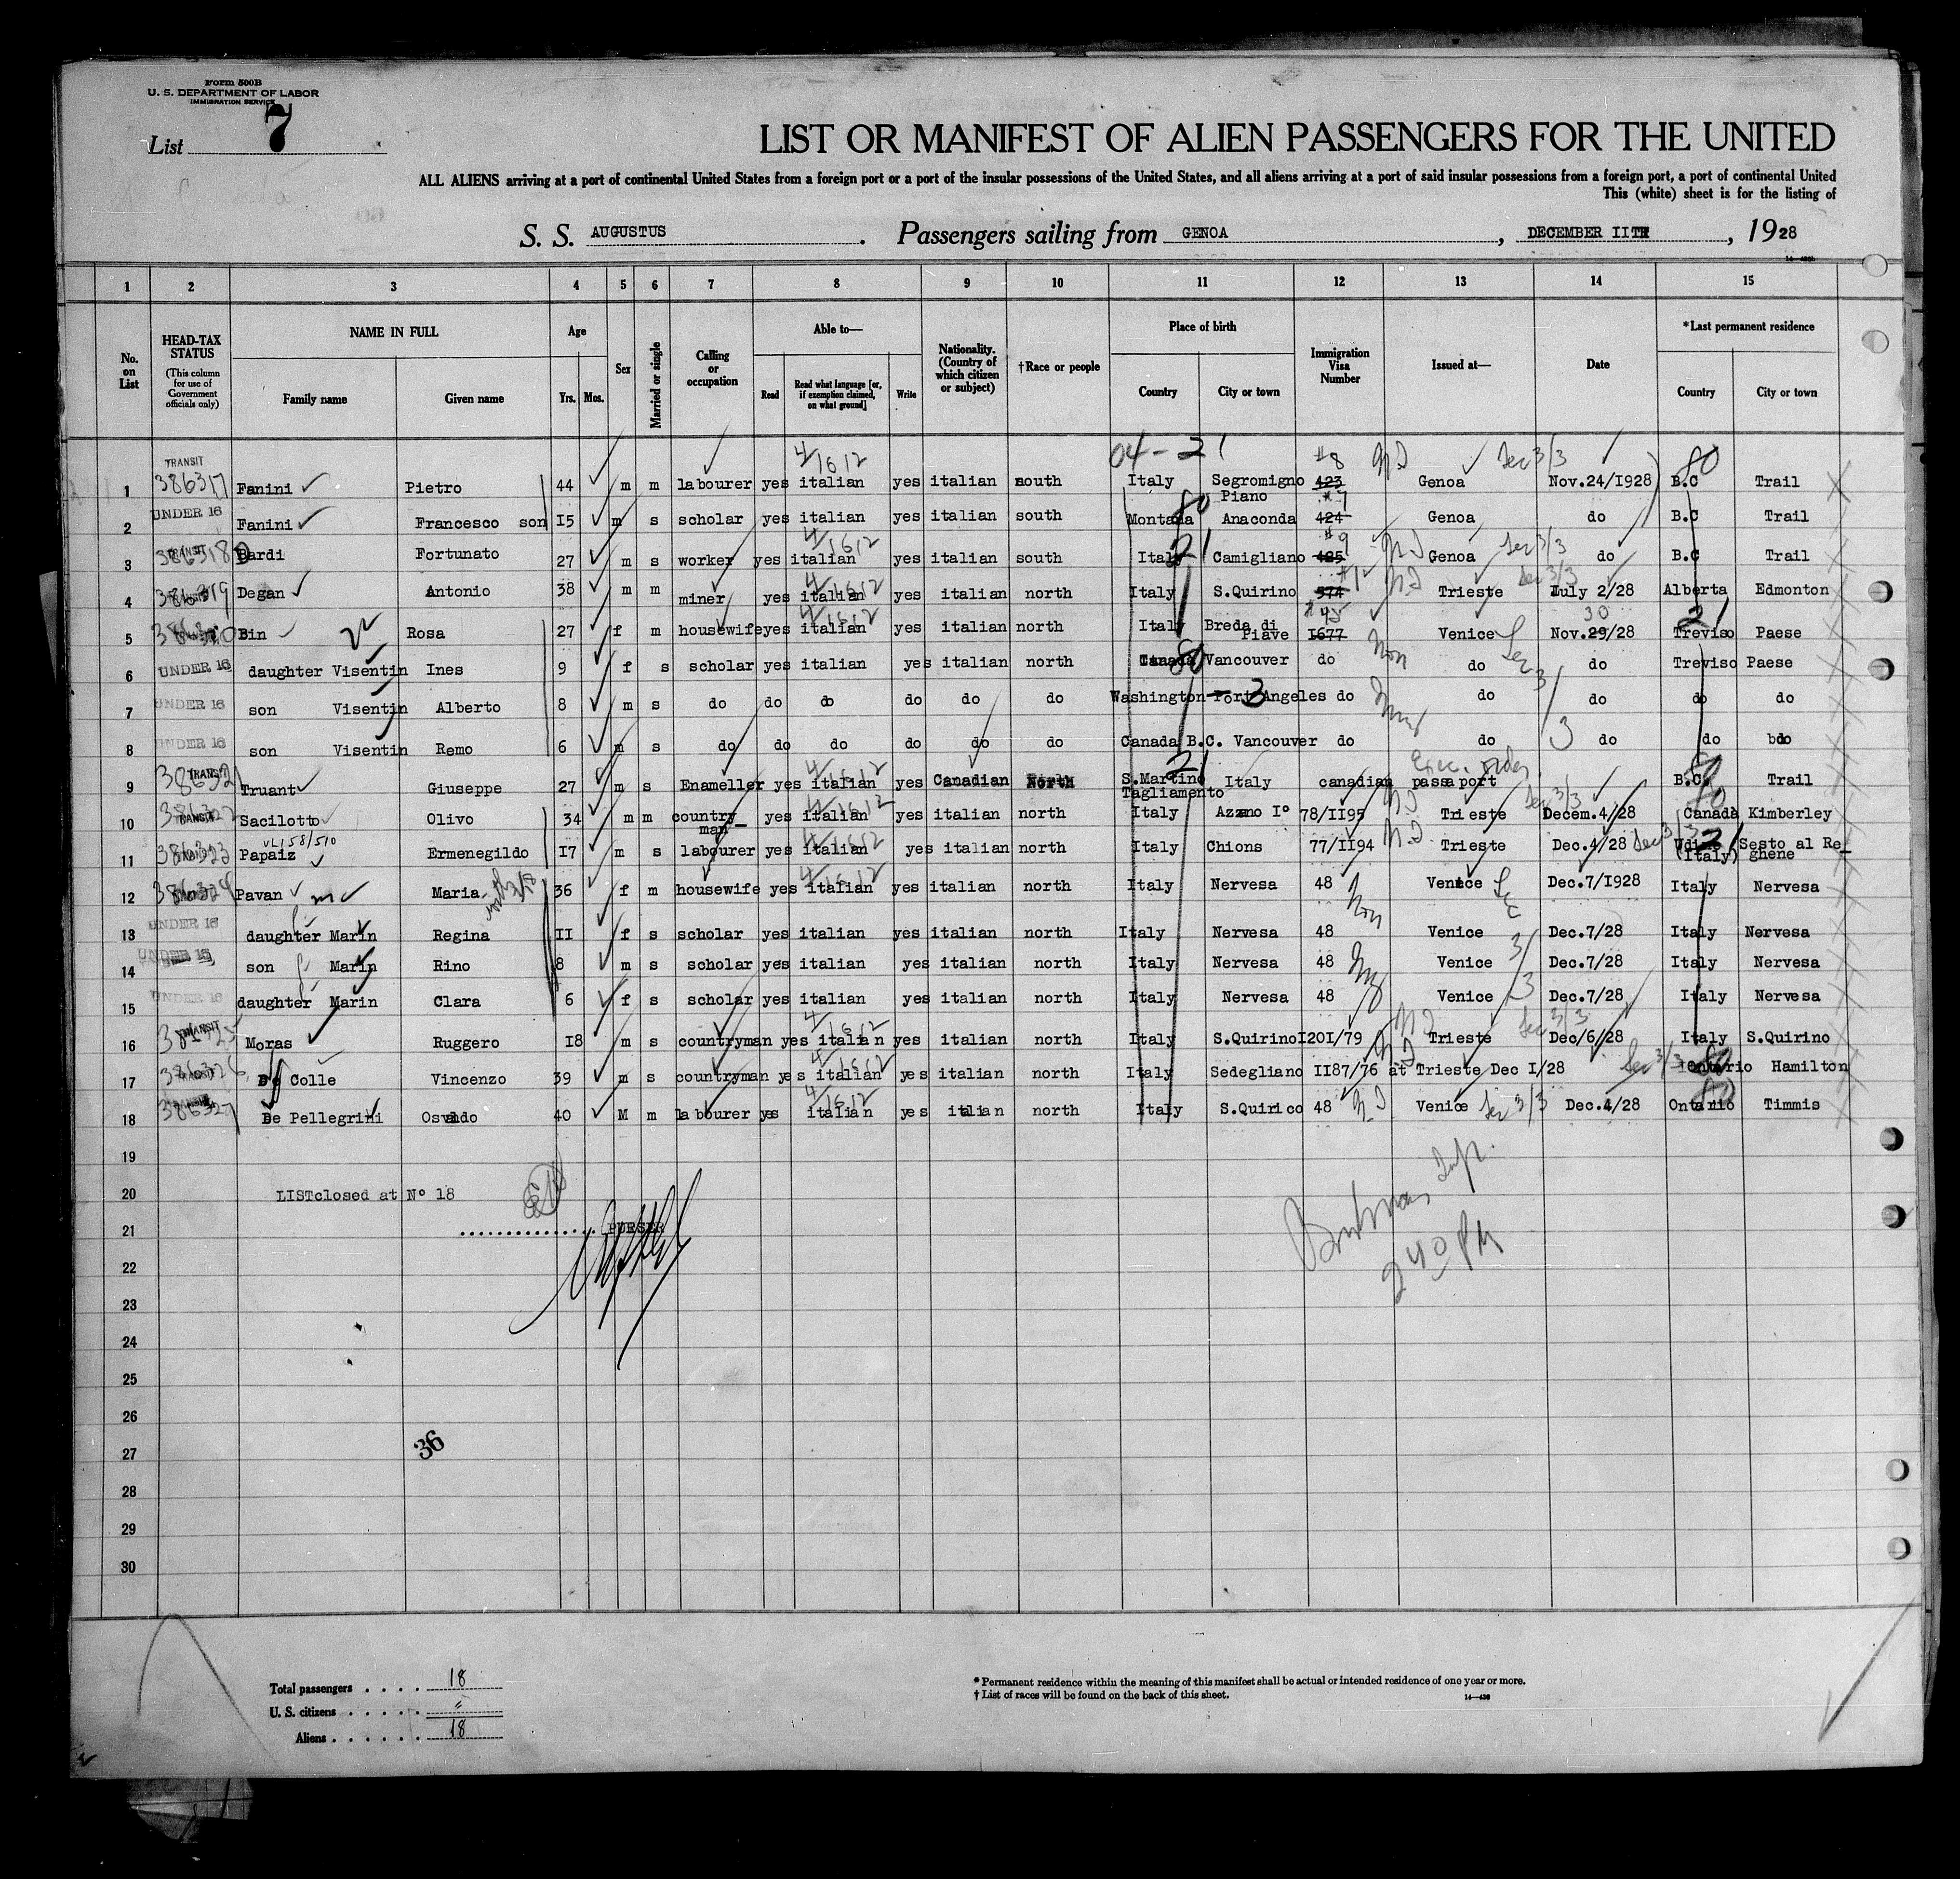 Form 500B
U. S. DEPARTMENT OF LABOR
IMMIGRATION SERVICE
List 7
LIST OR MANIFEST OF ALIEN PASSENGERS FOR THE UNITED
ALL ALIENS arriving at a port of continental United States from a foreign port or a port of the insular possessions of the United States, and all aliens arriving at a port of said insular possessions from a foreign port, a port of continental United
This (white) sheet is for the listing of
S. S. AUGUSTUS. Passengers sailing from GENOA, DECEMBER IITH, 1928
1 2 3 4 5 6 7 8 9 10 11 12 13 14 15
No. on List
HEAD-TAX STATUS (This column for use of Government officials only)
NAME IN FULL Family name Given name
Age Yrs. Mos.
Sex
Married or single
Calling or occupation
Able to— Read Read what language [or, if exemption claimed, on what ground] Write
Nationality. (Country of which citizen or subject)
†Race or people
Place of birth Country City or town
Immigration Visa Number
Issued at—
Date
*Last permanent residence Country City or town
04-21
1 TRANSIT 386317 Fanini Pietro 44 m m labourer yes italian yes italian south Italy Segromigno Piano 423 #8 Genoa Sec 3/3 Nov.24/1928 B.C Trail
2 UNDER 16 Fanini Francesco son I5 m s scholar yes italian yes italian south Montana Anaconda 424 #7 Genoa do B.C Trail
3 TRANSIT 386318 Bardi Fortunato 27 m s worker yes italian yes italian south Italy Camigliano 425 #9 Genoa Sec 3/3 do B.C Trail
4 386319 Degan Antonio 38 m m miner yes italian yes italian north Italy S.Quirino 574 Trieste Sec 3/3 July 2/28 Alberta Edmonton
5 Bin Rosa 27 f m housewife yes italian yes italian north Italy Breda di Piave I677 Venice Nov.29/28 30 Treviso Paese
6 UNDER 16 daughter Visentin Ines 9 f s scholar yes italian yes italian north Canada Vancouver do do do Treviso Paese
7 UNDER 16 son Visentin Alberto 8 m s do do do do do do Washington Port Angeles do do do do do
8 UNDER 16 son Visentin Remo 6 m s do do do do do do Canada B.C. Vancouver do do do do do
9 TRANSIT 386321 Truant Giuseppe 27 m s Enameller yes italian yes Canadian North S.Martino Tagliamento Italy canadian passaport B.C. Trail
10 TRANSIT 386322 Sacilotto Olivo 34 m m country_man yes italian yes italian north Italy Azzano I° 78/II95 Trieste Sec 3/3 Decem.4/28 Canada Kimberley
11 386323 Papaiz Ermenegildo I7 m s labourer yes italian yes italian north Italy Chions 77/II94 Trieste Dec.4/28 Udine (Italy) Sesto al Re_ghene
12 386324 Pavan Maria 36 f m housewife yes italian yes italian north Italy Nervesa 48 Venice Dec.7/I928 Italy Nervesa
13 UNDER 16 daughter Marin Regina II f s scholar yes italian yes italian north Italy Nervesa 48 Venice Dec.7/28 Italy Nervesa
14 UNDER 16 son Marin Rino 8 m s scholar yes italian yes italian north Italy Nervesa 48 Venice Dec.7/28 Italy Nervesa
15 UNDER 16 daughter Marin Clara 6 f s scholar yes italian yes italian north Italy Nervesa 48 Venice Dec.7/28 Italy Nervesa
16 TRANSIT Moras Ruggero I8 m s countryman yes italian yes italian north Italy S.Quirino I20I/79 Trieste Sec 3/3 Dec/6/28 Italy S.Quirino
17 386326 De Colle Vincenzo 39 m s countryman yes italian yes italian north Italy Sedegliano II87/76 at Trieste Dec I/28 Sec 3/3 Ontario Hamilton
18 386327 De Pellegrini Osvaldo 40 M m labourer yes italian yes italian north Italy S.Quirico 48 Venice Sec 3/3 Dec.4/28 Ontario Timmis
19
20 LISTclosed at N° 18
21 PURSER
22
23
24
25
26
27
28
29
30
2 40 PM
36
Total passengers . . . . 18
U. S. citizens . . . . . "
Aliens . . . . . . 18
* Permanent residence within the meaning of this manifest shall be actual or intended residence of one year or more.
† List of races will be found on the back of this sheet.
14—438